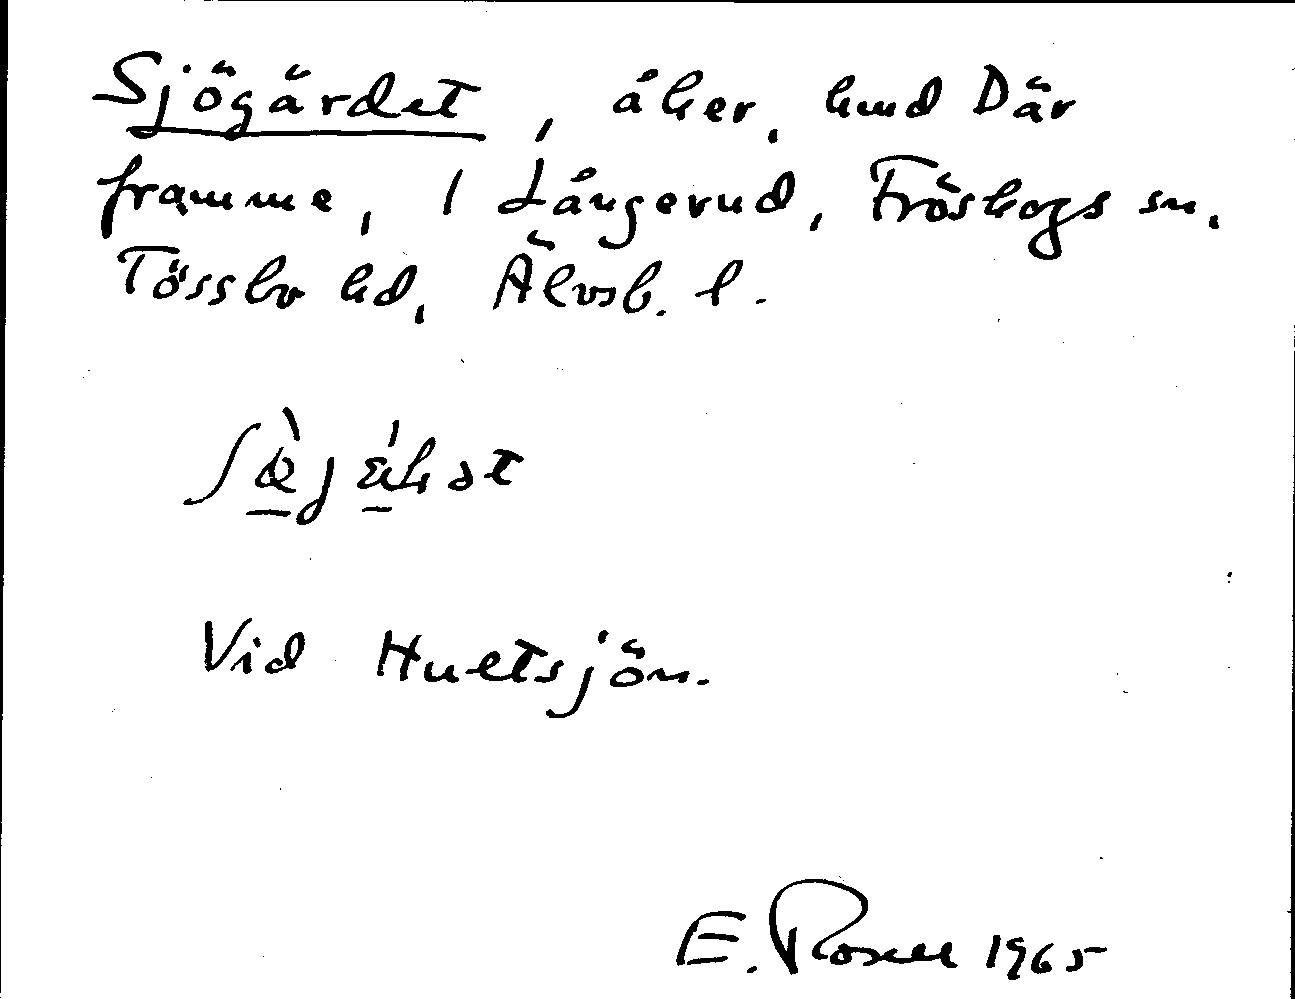 Sjögärdet, åker, hmd Där
framme, 1 Långerud, Fröskogs sn,
Tössbo hd, Älvsb. l.
Vid Hultsjön.
E. Rosell 1965